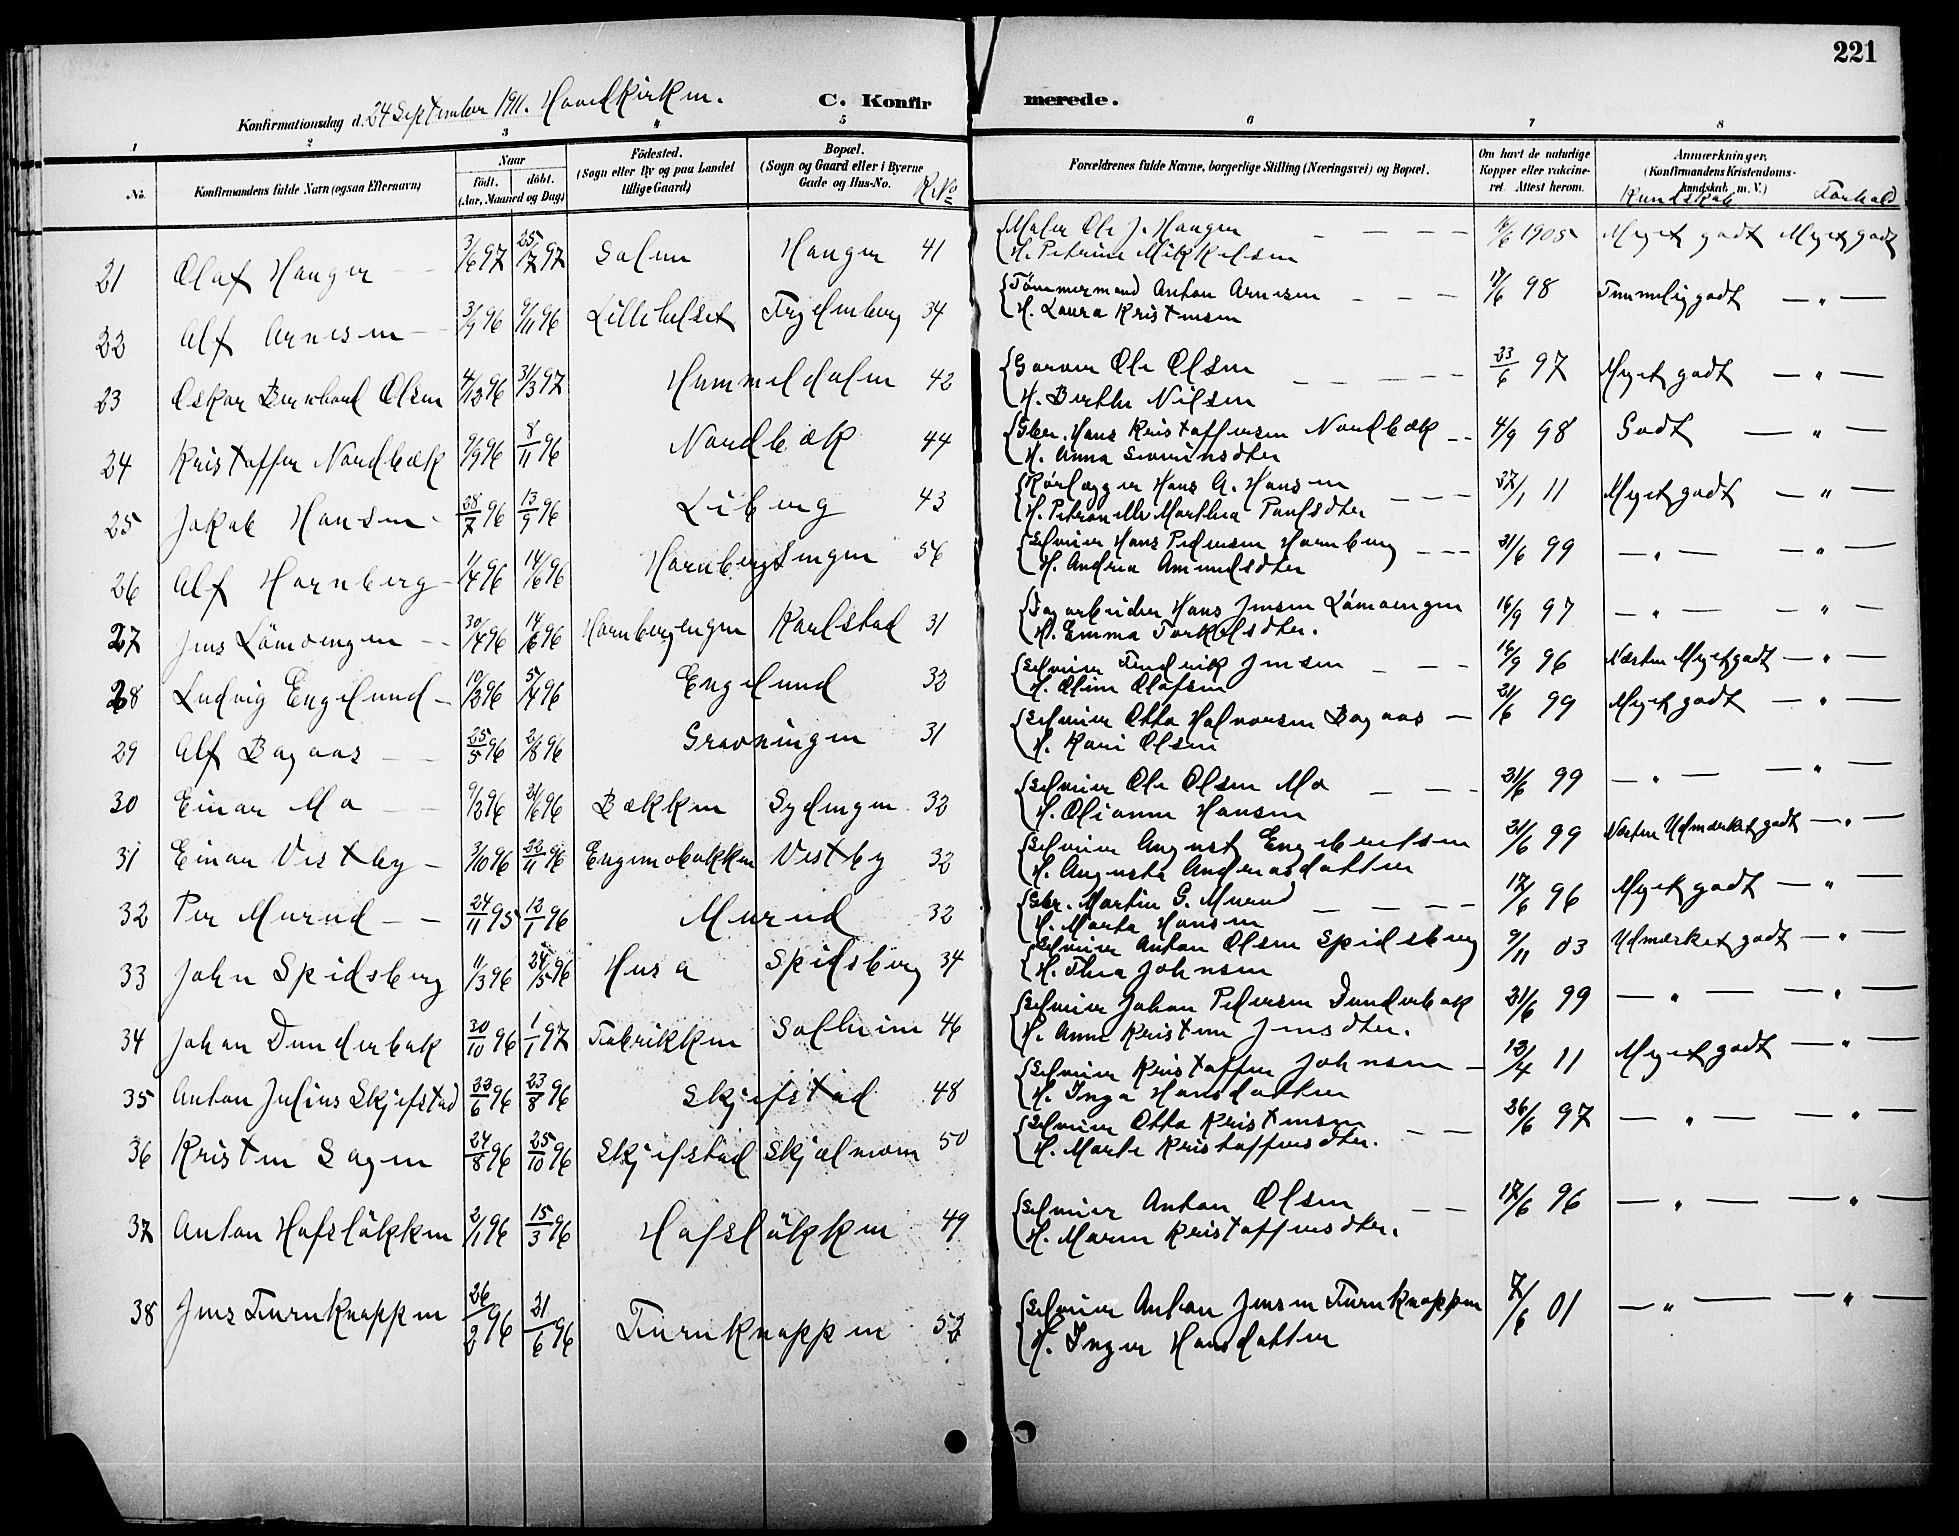 221
Konfirmationsdag d. 24 September 1911. Hovedkirken. C. Konfirmerede.
1 2 3 4 5 6 7 8
No. Konfirmandens fulde Navn (ogsaa Efternavn) Naar født. døbt. (Aar, Maaned og Dag) Fødested. (Sogn eller By og paa Landet tillige Gaard) Bopæl. (Sogn og Gaard eller i Byerne Gade og Hus-No. Forældrenes fulde Navne, borgerlige Stilling (Næringsvei) og Bopæl. Om havt de naturlige Kopper eller vaccineret. Attest herom. Anmærkninger. (Konfirmandens Kristendomskundskab m. V.) Kundskab Forhold
21 Olaf Haugen 3/6 97 25/7 97 Solem Haugen 41 Maler Ole J. Haugen 16/6 1905 Meget godt Meget godt
H. Petrine Mikkelsen
22 Alf Arnesen 3/9 96 9/11 96 Lillehelset Frydenberg 34 Tømmermand Anton Arnesen 17/6 98 Temmelig godt — " —
H. Laura Kristensen
23 Oskar Bernhard Olsen 4/12 96 31/3 97 Hummeldalen 42 Garver Ole Olsen 23/6 97 Meget godt — " —
H. Berthe Nilsen
24 Kristoffer Nordbæk 9/9 96 8/11 96 Nordbæk 44 Gbr. Hans Kristoffersen Nordbæk 4/9 98 Godt — " —
H. Anna Severinsdter
25 Jakob Hansen 28/7 96 13/9 96 Liberg 43 Rørlægger Hans A. Hansen 27/1 11 Meget godt — " —
H. Petronelle Marthea Paulsdter
26 Alf Hornberg 1/4 96 14/6 96 Hornbergsengen 56 Selveier Hans Pedersen Hornberg 21/6 99 — " — — " —
H. Andrea Amundsdter
27 Jens Lömoengen 30/4 96 14/6 96 Hornbergengen Karlstad 31 Dagarbeider Hans Jensen Lömoengen 16/9 97 — " — — " —
H. Emma Torkelsdter.
28 Ludvig Engelund 10/2 96 5/4 96 Engelund 32 Selveier Fredrik Jensen 16/9 96 Næsten Meget godt — " —
H. Oline Olafsen
29 Alf Bagaas 25/5 96 2/8 96 Gravningen 31 Selveier Otto Halvorsen Bagaas 21/6 99 Meget godt — " —
H. Kari Olsen
30 Einar Mo 9/2 96 21/6 96 Bækken Sydengen 32 Selveier Ole Olsen Mo 21/6 99 — " — — " —
H. Olianne Hansen
31 Einar Vestby 3/10 96 22/11 96 Engemobakken Vestby 32 Selveier August Engebretsen 21/6 99 Næsten Udmærket godt — " —
H. Augusta Andreasdatter
32 Per Murud 24/11 95 12/1 96 Murud 32 Gbr. Martin G. Murud 17/6 96 Meget godt — " —
H. Marta Hansen
33 John Spidsberg 11/3 96 24/5 96 Husa Spidsberg 34 Selveier Anton Olsen Spidsberg 9/11 03 Udmærket godt — " —
H. Thea Johnsen
34 Johan Dunderbak 20/10 96 1/1 97 Fabrikken Solheim 46 Selveier Johan Pedersen Dunderbak 21/6 99 — " — — " —
H. Anne Kristine Jensdter.
35 Anton Julius Skjefstad 22/6 96 23/8 96 Skjefstad 48 Selveier Kristoffer Johnsen 12/4 11 Meget godt — " —
H. Inga Hansdatter
36 Kristen Sagen 24/8 96 25/10 96 Skjefstad Skjælmoen 50 Selveier Otto Kristensen 26/6 97 — " — — " —
H. Marte Kristoffersdter.
37 Anton Hofslökken 2/1 96 15/3 96 Hofslökken 49 Selveier Anton Olsen 17/6 96 — " — — " —
H. Maren Kristoffersdter.
38 Jens Furuknappen 26/2 96 21/6 96 Furuknappen 52 Selveier Anton Jensen Furuknappen 7/6 01 — " — — " —
H. Inger Hansdatter